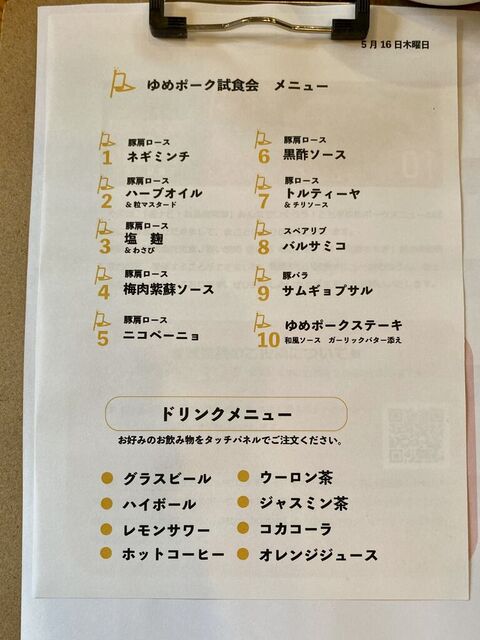 5月16日木曜日
ゆめポーク試食会 メニュー
豚肩ロース
1 ネギミンチ
豚肩ロース
2 ハーブオイル
& 粒マスタード
豚肩ロース
3 塩 麹
& わさび
豚肩ロース
4 梅肉紫蘇ソース
豚肩ロース
5 ニコペーニョ
豚肩ロース
6 黒酢ソース
豚ロース
7 トルティーヤ
& チリソース
スペアリブ
8 バルサミコ
豚バラ
9 サムギョプサル
10 ゆめポークステーキ
和風ソース ガーリックバター添え
ドリンクメニュー
お好みのお飲み物をタッチパネルでご注文ください。
グラスビール
ハイボール
レモンサワー
ホットコーヒー
ウーロン茶
ジャスミン茶
コカコーラ
オレンジジュース